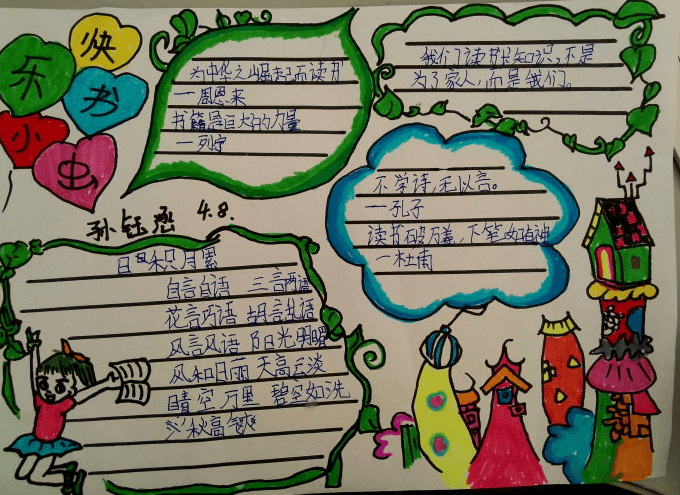 快
乐
书
小
虫
为中华之崛起而读书
一周恩来
书籍是巨大的力量
一列宁
我们读书长知识,不是
为了家人,而是我们。
不学诗,无以言。
一孔子
一杜甫
4.8.
日日积月累
自言自语 三言两语
花言巧语 胡言乱语
风言风语 阳光明媚
风和日丽 天高云淡
晴空万里 碧空如洗
秋高气爽